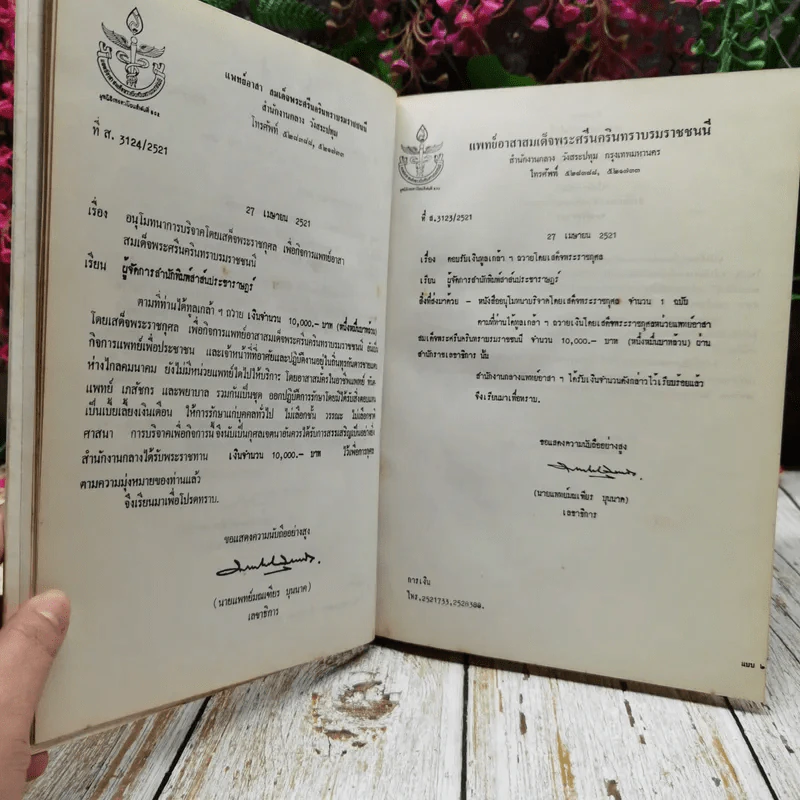 แพทย์อาสา สมเด็จพระศรีนครินทราบรมราชชนนี
สำนักงานกลาง วังสระปทุม
โทรศัพท์ ๕๒๘๓๘๘, ๕๒๑๗๓๓
ที่ ส. 3124/2521
27 เมษายน 2521
เรื่อง อนุโมทนาการบริจาคโดยเสด็จพระราชกุศล เพื่อกิจการแพทย์อาสา
สมเด็จพระศรีนครินทราบรมราชชนนี
เรียน ผู้จัดการสำนักพิมพ์สาส์นประชาราษฎร์
ตามที่ท่านได้ทูลเกล้า ฯ ถวาย เงินจำนวน 10,000.- บาท (หนึ่งหมื่นบาทถ้วน)
โดยเสด็จพระราชกุศล เพื่อกิจการแพทย์อาสาสมเด็จพระศรีนครินทราบรมราชชนนี
กิจการแพทย์เพื่อประชาชน และเจ้าหน้าที่ที่อาศัยและปฏิบัติงานอยู่ในถิ่นทุรกันดารชายแดน
ห่างไกลคมนาคม ยังไม่มีหน่วยแพทย์ใดไปให้บริการ โดยอาสาสมัครในอาชีพแพทย์ ทันต
แพทย์ เภสัชกร และพยาบาล รวมกันเป็นชุด ออกปฏิบัติการรักษาโดยมิได้รับสิ่งตอบแทน
เป็นเบี้ยเลี้ยงเงินเดือน ให้การรักษาแก่บุคคลทั่วไป ไม่เลือกชั้น วรรณะ ไม่เลือกชาติ
ศาสนา การบริจาคเพื่อกิจการนี้ จึงนับเป็นกุศลเจตนาอันควรได้รับการสรรเสริญเป็นอย่างยิ่ง
สำนักงานกลางได้รับพระราชทาน เงินจำนวน 10,000.- บาท ไว้เพื่อการกุศล
ตามความมุ่งหมายของท่านแล้ว
จึงเรียนมาเพื่อโปรดทราบ.
ขอแสดงความนับถืออย่างสูง
(นายแพทย์มณเฑียร บุนนาค)
เลขาธิการ
แพทย์อาสาสมเด็จพระศรีนครินทราบรมราชชนนี
สำนักงานกลาง วังสระปทุม กรุงเทพมหานคร
โทรศัพท์ ๕๒๘๓๘๘, ๕๒๑๗๓๓
ที่ ส.3123/2521
27 เมษายน 2521
เรื่อง ตอบรับเงินทูลเกล้า ฯ ถวายโดยเสด็จพระราชกุศล
เรียน ผู้จัดการสำนักพิมพ์สาส์นประชาราษฎร์
สิ่งที่ส่งมาด้วย - หนังสืออนุโมทนาบริจาคโดยเสด็จพระราชกุศล จำนวน 1 ฉบับ
ตามที่ท่านได้ทูลเกล้า ฯ ถวายเงินโดยเสด็จพระราชกุศลหน่วยแพทย์อาสา
สมเด็จพระศรีนครินทราบรมราชชนนี จำนวน 10,000.- บาท (หนึ่งหมื่นบาทถ้วน) ผ่าน
สำนักราชเลขาธิการ นั้น
สำนักงานกลางแพทย์อาสา ฯ ได้รับเงินจำนวนดังกล่าวไว้เรียบร้อยแล้ว
จึงเรียนมาเพื่อทราบ.
ขอแสดงความนับถืออย่างสูง
(นายแพทย์มณเฑียร บุนนาค)
เลขาธิการ
การเงิน
โทร.2521733,2528388.
แบบ ๒